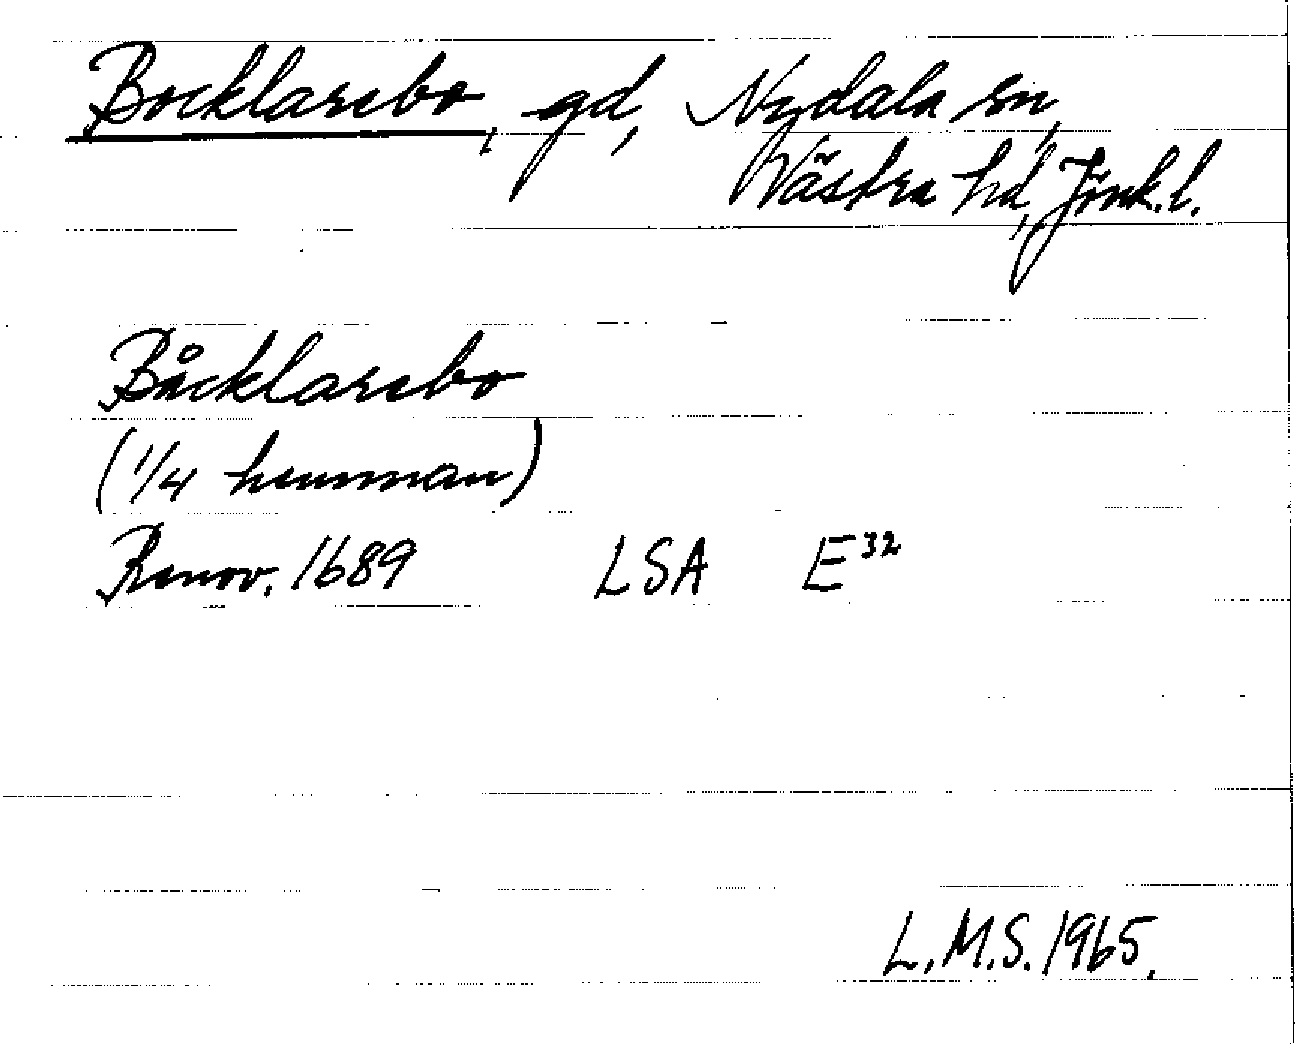 Bocklarebo, gd, Nydala sn,
Västra hd, Jönk. l.
Båcklarebo
(1/4 hemman)
Renov. 1689 LSA E32
L.M.S. 1965.